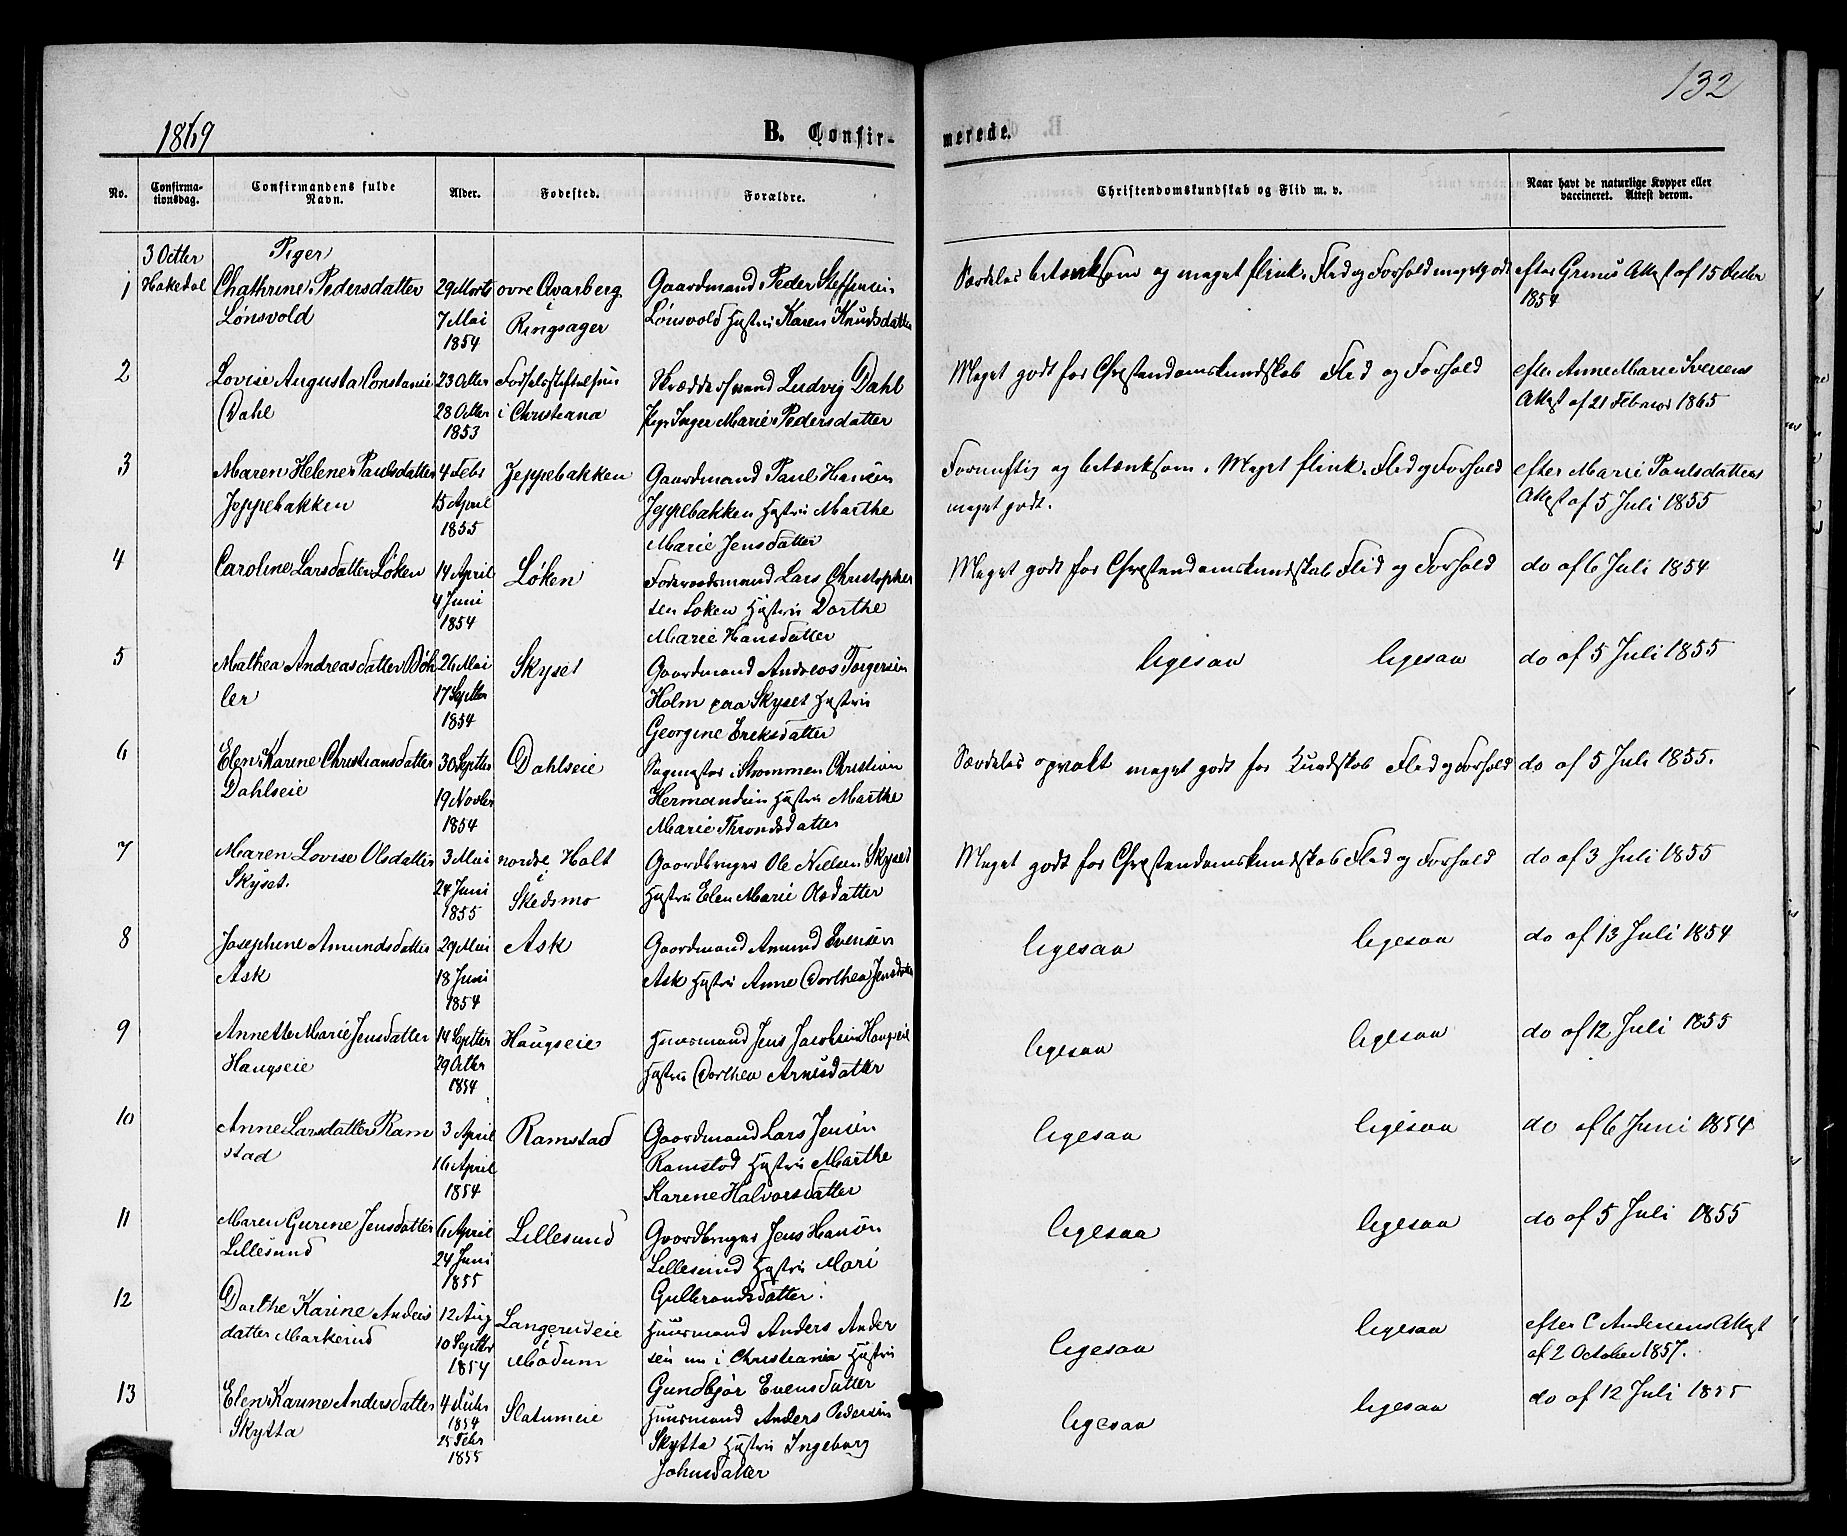 132
1869
B. Confir-
merede.
No.
Confirma-
tionsdag.
Confirmandens fulde
Navn.
Alder.
Fødested.
Forældre.
Christendomskundskab og Flid m. v.
Naar havt de naturlige Kopper eller
vaccineret. Attest derom.
3 Octbr
Hakedal
Piger
1
Chathrine Pedersdatter
Lønsvold
29 Marts
7 Mai
1854
ovre Qvarberg
Ringsager
Gaardmand Peder Steffensen
Lønsvold Hustru Karen Knudsdatter
Særdeles betænksom og meget flink. Flid og Forhold meget godt
efter Grenis Attest af 15 Decbr
1854
2
Lovise Augusta Constanse
Dahl
23 Octbr
28 Octbr
1853
Fødselsstiftelsen
i Christiana
Skræddersvend Ludvig Dahl
Pige Inger Marie Pedersdatter
Meget godt for Christendomskundskab Flid og Forhold
efter Anne Marie Iversens
Attest af 21 Februar 1865
3
Maren Helene Paulsdatter
Jeppebakken
4 Febr
15 April
1855
Jeppebakken
Gaardmand Paul Hansen
Jeppebakken Hustru Marthe
Marie Jensdatter
Fornuftig og betænksom. Meget flink. Flid og Forhold
meget godt.
efter Marie Paulsdatters
Attest af 5 Juli 1855
4
Caroline Larsdatter Løken
14 April
4 Juni
1854
Løken
Foderaadsmand Lars Christopher
sen Løken Hustru Dorthe
Marie Hansdatter
Meget godt for Christendomskundskab Flid og Forhold
do af 6 Juli 1854
5
Mathea Andreasdatter Bøh
ler
26 Mai
17 Septbr
1854
Skyset
Gaardmand Andreas Torgersen
Holm paa Skyset Hustru
Georgine Eriksdatter
ligesaa ligesaa
do af 5 Juli 1855
6
Elen Karine Christiansdatter
Dahlseie
30 Septbr
19 Novbr
1854
Dahlseie
Sagmester i Strømmen Christian
Hermandsen Hustru Marthe
Marie Throndsdatter
Særdeles opvakt meget godt for Kundskab Flid og Forhold
do af 5 Juli 1855.
7
Maren Lovise Olsdatter
Skyset.
3 Mai
24 Juni
1855
nordre Holt
i
Skedsmo
Gaardbruger Ole Nielsen Skyset
Hustru Elen Marie Olsdatter
Meget godt for Christendomskundskab Flid og Forhold
do af 3 Juli 1855
8
Josephine Amundsdatter
Ask
29 Mai
18 Juni
1854
Ask
Gaardmand Amund Evensen
Ask Hustru Anne Dorthea Jensdatter
ligesaa ligesaa
do af 13 Juli 1854
9
Annette Marie Jensdatter
Haugseie
14 Septbr
29 Octbr
1854
Haugseie
Huusmand Jens Jacobsen Haugseie
Hustru Dorthea Arnesdatter
ligesaa ligesaa
do af 12 Juli 1855
10
Anne Larsdatter Ram
stad
3 April
16 April
1854
Ramstad
Gaardmand Lars Jensen
Ramstad Hustru Marthe
Karene Halvorsdatter
ligesaa ligesaa
do af 6 Juni 1854
11
Maren Gurine Jensdatter
Lillesund
6 April
24 Juni
1855
Lillesund
Gaardbruger Jens Hansen
Lillesund Hustru Mari
Gulbrandsdatter.
ligesaa ligesaa
do af 5 Juli 1855
12
Dorthe Karine Anders
datter Markerud
12 Aug
10 Septbr
1854
Langerudeie
i
Modum
Huusmand Anders Ander
sen nu i Christiania Hustru
Gundbjør Evensdatter
ligesaa ligesaa
efter C Andersens Attest
af 2 October 1857.
13
Elen Karine Andersdatter
Skytta
1854
25 Febr
1855
Slatumeie
Huusmand Anders Pedersen
Skytta Hustru Ingeborg
Johnsdatter
ligesaa ligesaa
do af 12 Juli 1855